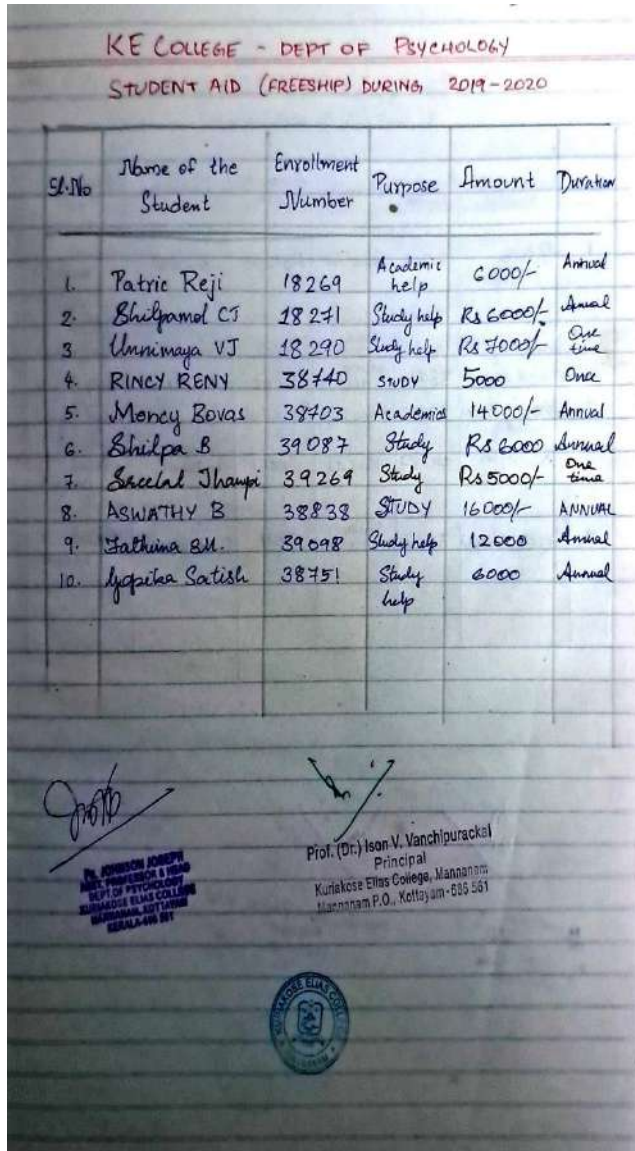 KE COLLEGE - DEPT OF PSYCHOLOGY
STUDENT AID (FREESHIP) DURING 2019-2020
Sl.No Name of the Student Enrollment Number Purpose Amount Duration
1. Patric Reji 18269 Academic help 6000/- Annual
2. Shilpamol CJ 18271 Study help Rs 6000/- Annual
3 Unnimaya VJ 18290 Study help Rs 7000/- One time
4. RINCY RENY 38740 STUDY 5000 Once
5. Moncy Bovas 38703 Academics 14000/- Annual
6. Shilpa B 39087 Study Rs 6000 Annual
7. Sreelal Thampi 39269 Study Rs 5000/- One time
8. ASWATHY B 38838 STUDY 16000/- ANNUAL
9. Fathima S.M. 39098 Study help 12000 Annual
10. Gopika Satish 38751 Study help 6000 Annual
Prof. (Dr.) Ison V. Vanchipurackal
Principal
Kuriakose Elias College, Mannanam
Mannanam P.O., Kottayam-686 561
JOHNSON JOSEPH
ASST. PROFESSOR & HEAD
DEPT OF PSYCHOLOGY
KURIAKOSE ELIAS COLLEGE
MANNANAM, KOTTAYAM
KERALA-686 561
KURIAKOSE ELIAS COLLEGE